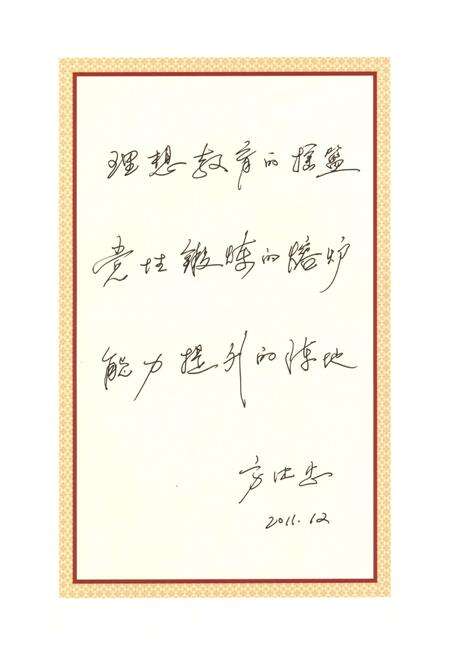 理想教育的摇篮
党性锻炼的熔炉
能力提升的阵地
2011.12